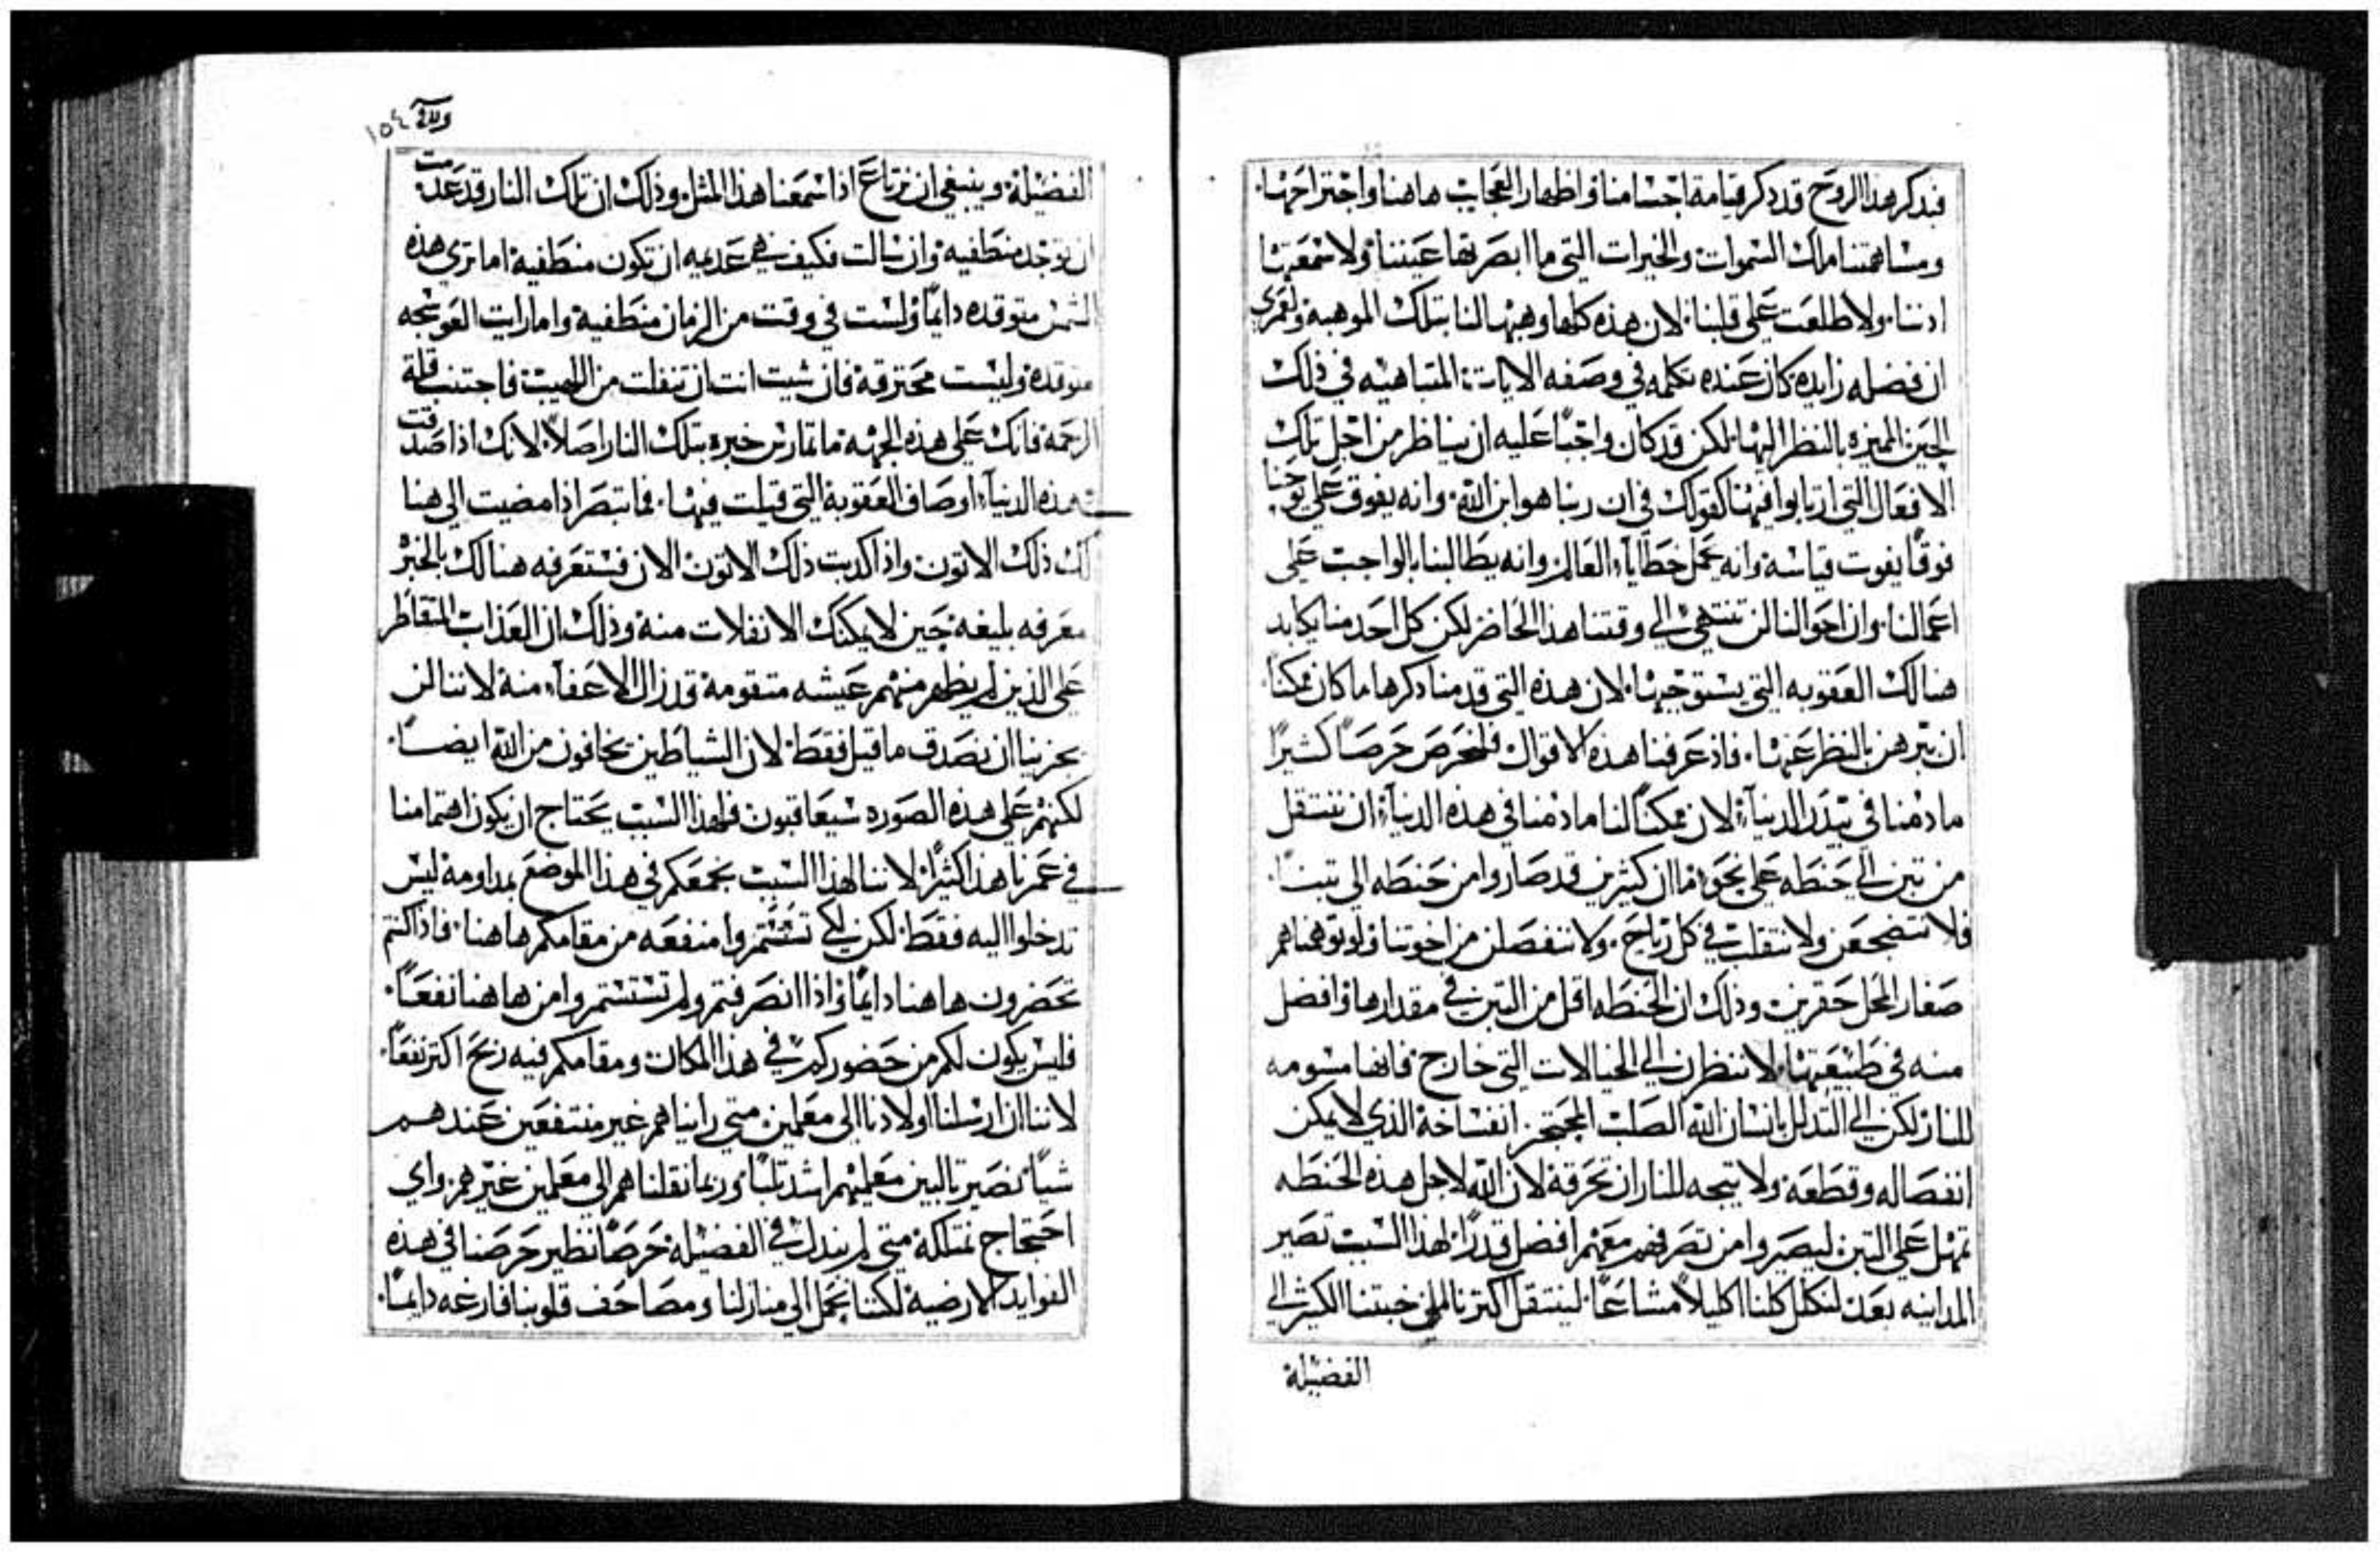 فبذكر هذا الروح قد ذكر قيامة اجسامنا واظهار العجايب هاهنا واجتراحها.
ومساهمتنا ملك السموات والخيرات التي ما ابصرتها عيننا ولا سمعتها
اذننا. ولا طلعت على قلبنا. لان هذه كلها وهبها لنا بتلك الموهبة ولعمري
ان فضله زايده كان عنده تكلمه في وصفه الايات المتباهيه في ذلك
الحين المميزه بالنظر اليها. لكن قد كان واجبًا عليه ان يناظر من اجل تلك
الافعال التي ارتابوا فيها كقولك في ان ربنا هو ابن الله. وانه يفوق على يوحنا
فوقًا يفوت قياسه وانه يحمل خطاياء العالم وانه يطالبنا بالواجب على
اعمالنا. وان احوالنا لن تنتهي الي وقتنا هذا الحاضر لكن كل احد منا يكابد
هنالك العقوبه التي يستوجبها. لان هذه التي قدمنا ذكرها ما كان ممكنًا
ان تبرهن بالنظر عنها. فاذ عرفنا هذه الاقوال فلنحرص حرصًا كثيرًا
ما دمنا في بيدر الدنياء. لان ممكنًا لنا ما دمنا في هذه الدنياء ان ننتقل
من تبن الي حنطه على نحو ما ان كثيرين قد صاروا من حنطه الي تبنًا.
فلا نتضجعن ولا نتقلب في كل رياح. ولا ننفصلن من اخوتنا ولو توهمناهم
صغار المحل حقرين وذلك ان الحنطه اقل من التبن في مقدارها وافضل
منه في طبيعتها. لا ننظرن الي الخيالات التي خارج فانها مسومه
للنار لكن الي التذلل بانسان الله الصلب المحتجز انفساخه الذي لا يمكن
انفصاله وقطعه ولا يتجه للنار ان تحرقه لان الله لاجل هذه الحنطه
تمهل على التبن ليصيروا من تصرفهم معهم افضل قدرًا. لهذا السبب تصير
المداينه بعد لنكلل كلنا اكليلاً مشاعًا. لينتقل اكثرنا من خبثنا الكثير الي
الفضيلة
ورقة ١٥٤
الفضيلة. وينبغي ان نرتاع اذا سمعنا هذا المثل. وذلك ان تلك النار قد عدمت
ان توجد منطفية وان سالت فكيف هي عديمه ان تكون منطفية اما ترى هذه
الشمس متوقده دايمًا وليست في وقت من الزمان منطفية واما رايت العوسجه
متوقدة وليست محترقة فان شيت انت ان تنفلت من اللهيب فاجتنب قلة
الرحمة فانك على هذه الجهة ما تمارس خبرة بتلك النار اصلاً. لانك اذا صدقت
بهذه الدنياء اوصاف العقوبة التي قيلت فيها. فما تبصر اذا مضيت الى هنا
لك ذلك الاتون واذا كدبت ذلك الاتون الان فستعرفه هنالك بالخبر
معرفه بليغه حين لا يمكنك الانفلات منه وذلك ان العذاب المتقاطر
على الذين لم يظهر منهم عيشه متقومة قد زال الاعفاء منة لاننا لن
يجزينا ان نصدق ما قيل فقط. لان الشياطين يخافون من الله ايضًا.
لكنهم على هذه الصوره سيعاقبون فلهذا السبب يحتاج ان يكون اهتمامنا
في عمرنا هذا كثيرًا. لاننا لهذا السبب نجمعكم في هذا الموضع بمداومة ليس
تدخلوا اليه فقط. لكن لكي تستثمروا منفعه من مقامكم هاهنا. فاذا كنتم
تحضرون هاهنا دايمًا واذا انصرفتم ولم تستثمروا من هاهنا نفعًا.
فليس يكون لكم من حضوركم في هذا المكان ومقامكم فيه ربح اكثر نفعًا.
لاننا ان ارسلنا اولادنا الى معلمين متى رايناهم غير منتفعين عندهم
شيًا. نصير تالبين معلميهم اشد تلبًا وربما نقلناهم الى معلمين غيرهم. واي
احتجاج نمتلكه متى لم نبذل في الفضيلة حرصًا نظير حرصنا في هذه
الفوايد الارضية. لكننا نحمل الى منازلنا ومصاحف قلوبنا فارغه دايمًا.